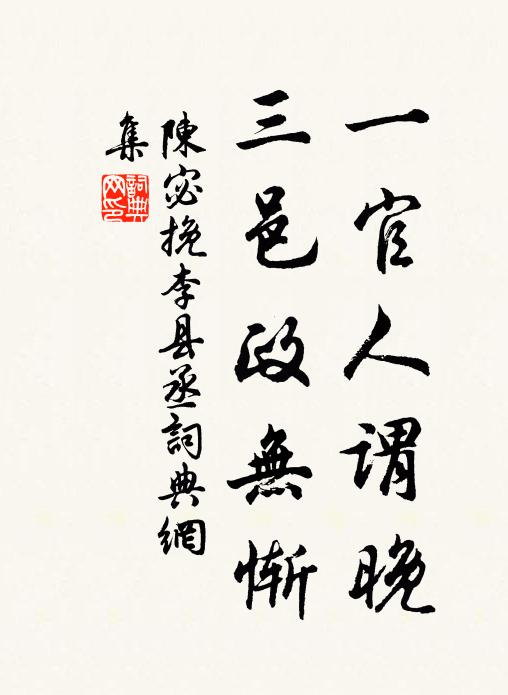 一官人謂晚
三邑政無慚
陳宓挽李县丞詞典網
集
詞典網印